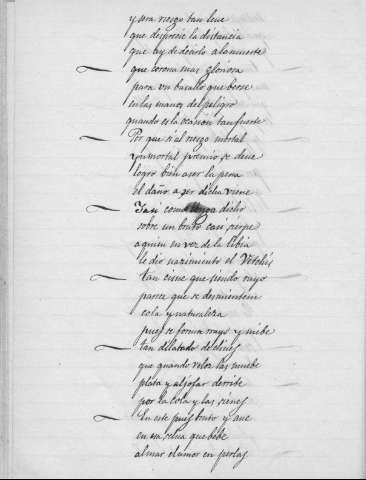 y sera riesgo tan leve
que desprecie la distancia
que hay de decirlo a la muerte
que corona mas gloriosa
para un basallo que berse
en las manos del peligro
quando es la ocasion tan fuerte
Por que si al riesgo mortal
ynmortal premio se deve
logro bien aser la pena
el daño a ser dicha viene
Yasi como tengo dicho
sobre un bruto casi sierpe
a quien en vez de la Libia
le dio nacimiento el
tan cisne que siendo rayo
parece que se desmienten
cola y naturaleza
pues se forma rayo y nieve
tan dilatado de
que quando veloz las mueve
plata y aljofar derribe
por la cola y las sienes
En este pues bruto y ave
en esa selva que bebe
al mar el umor en perlas